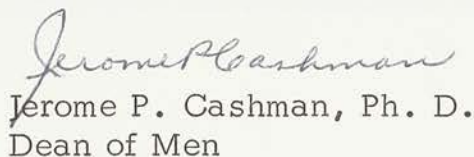 Jerome P Cashman
Jerome P. Cashman, Ph. D.
Dean of Men